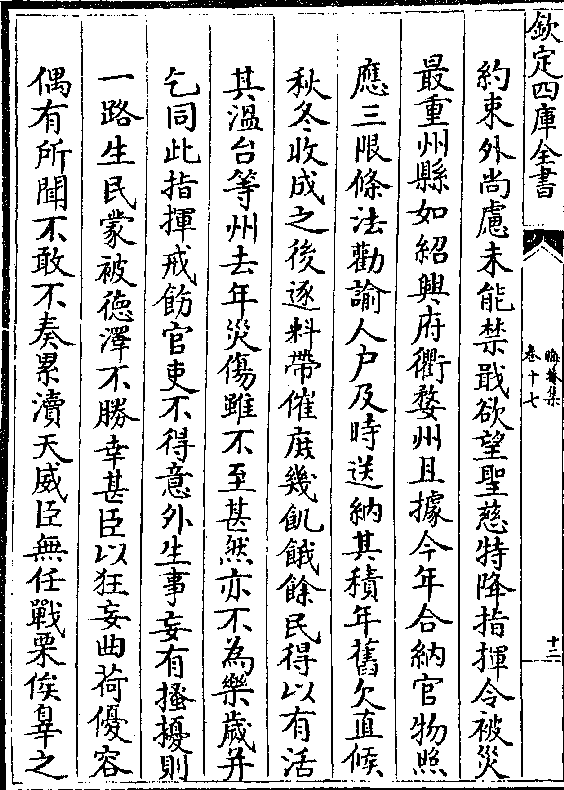 欽定四庫全書
晦菴集
卷十七
十二
約束外尚慮未能禁戢欲望聖慈特降指揮令被災
最重州縣如紹興府衢婺州且據今年合納官物照
應三限條法勸諭人户及時送納其積年舊欠直候
秋冬收成之後逐料帶催庶幾飢餓餘民得以有活
其溫台等州去年災傷雖不至甚然亦不為樂歳并
乞同此指揮戒飭官吏不得意外生事妄有搔擾則
一路生民蒙被徳澤不勝幸甚臣以狂妄曲荷優容
偶有所聞不敢不奏累瀆天威臣無任戰栗俟辠之